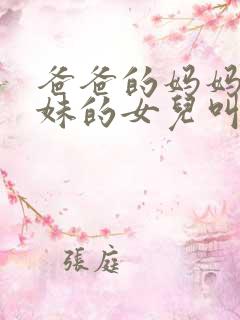 爸爸的妈妈
妹的女兒叫
張庭